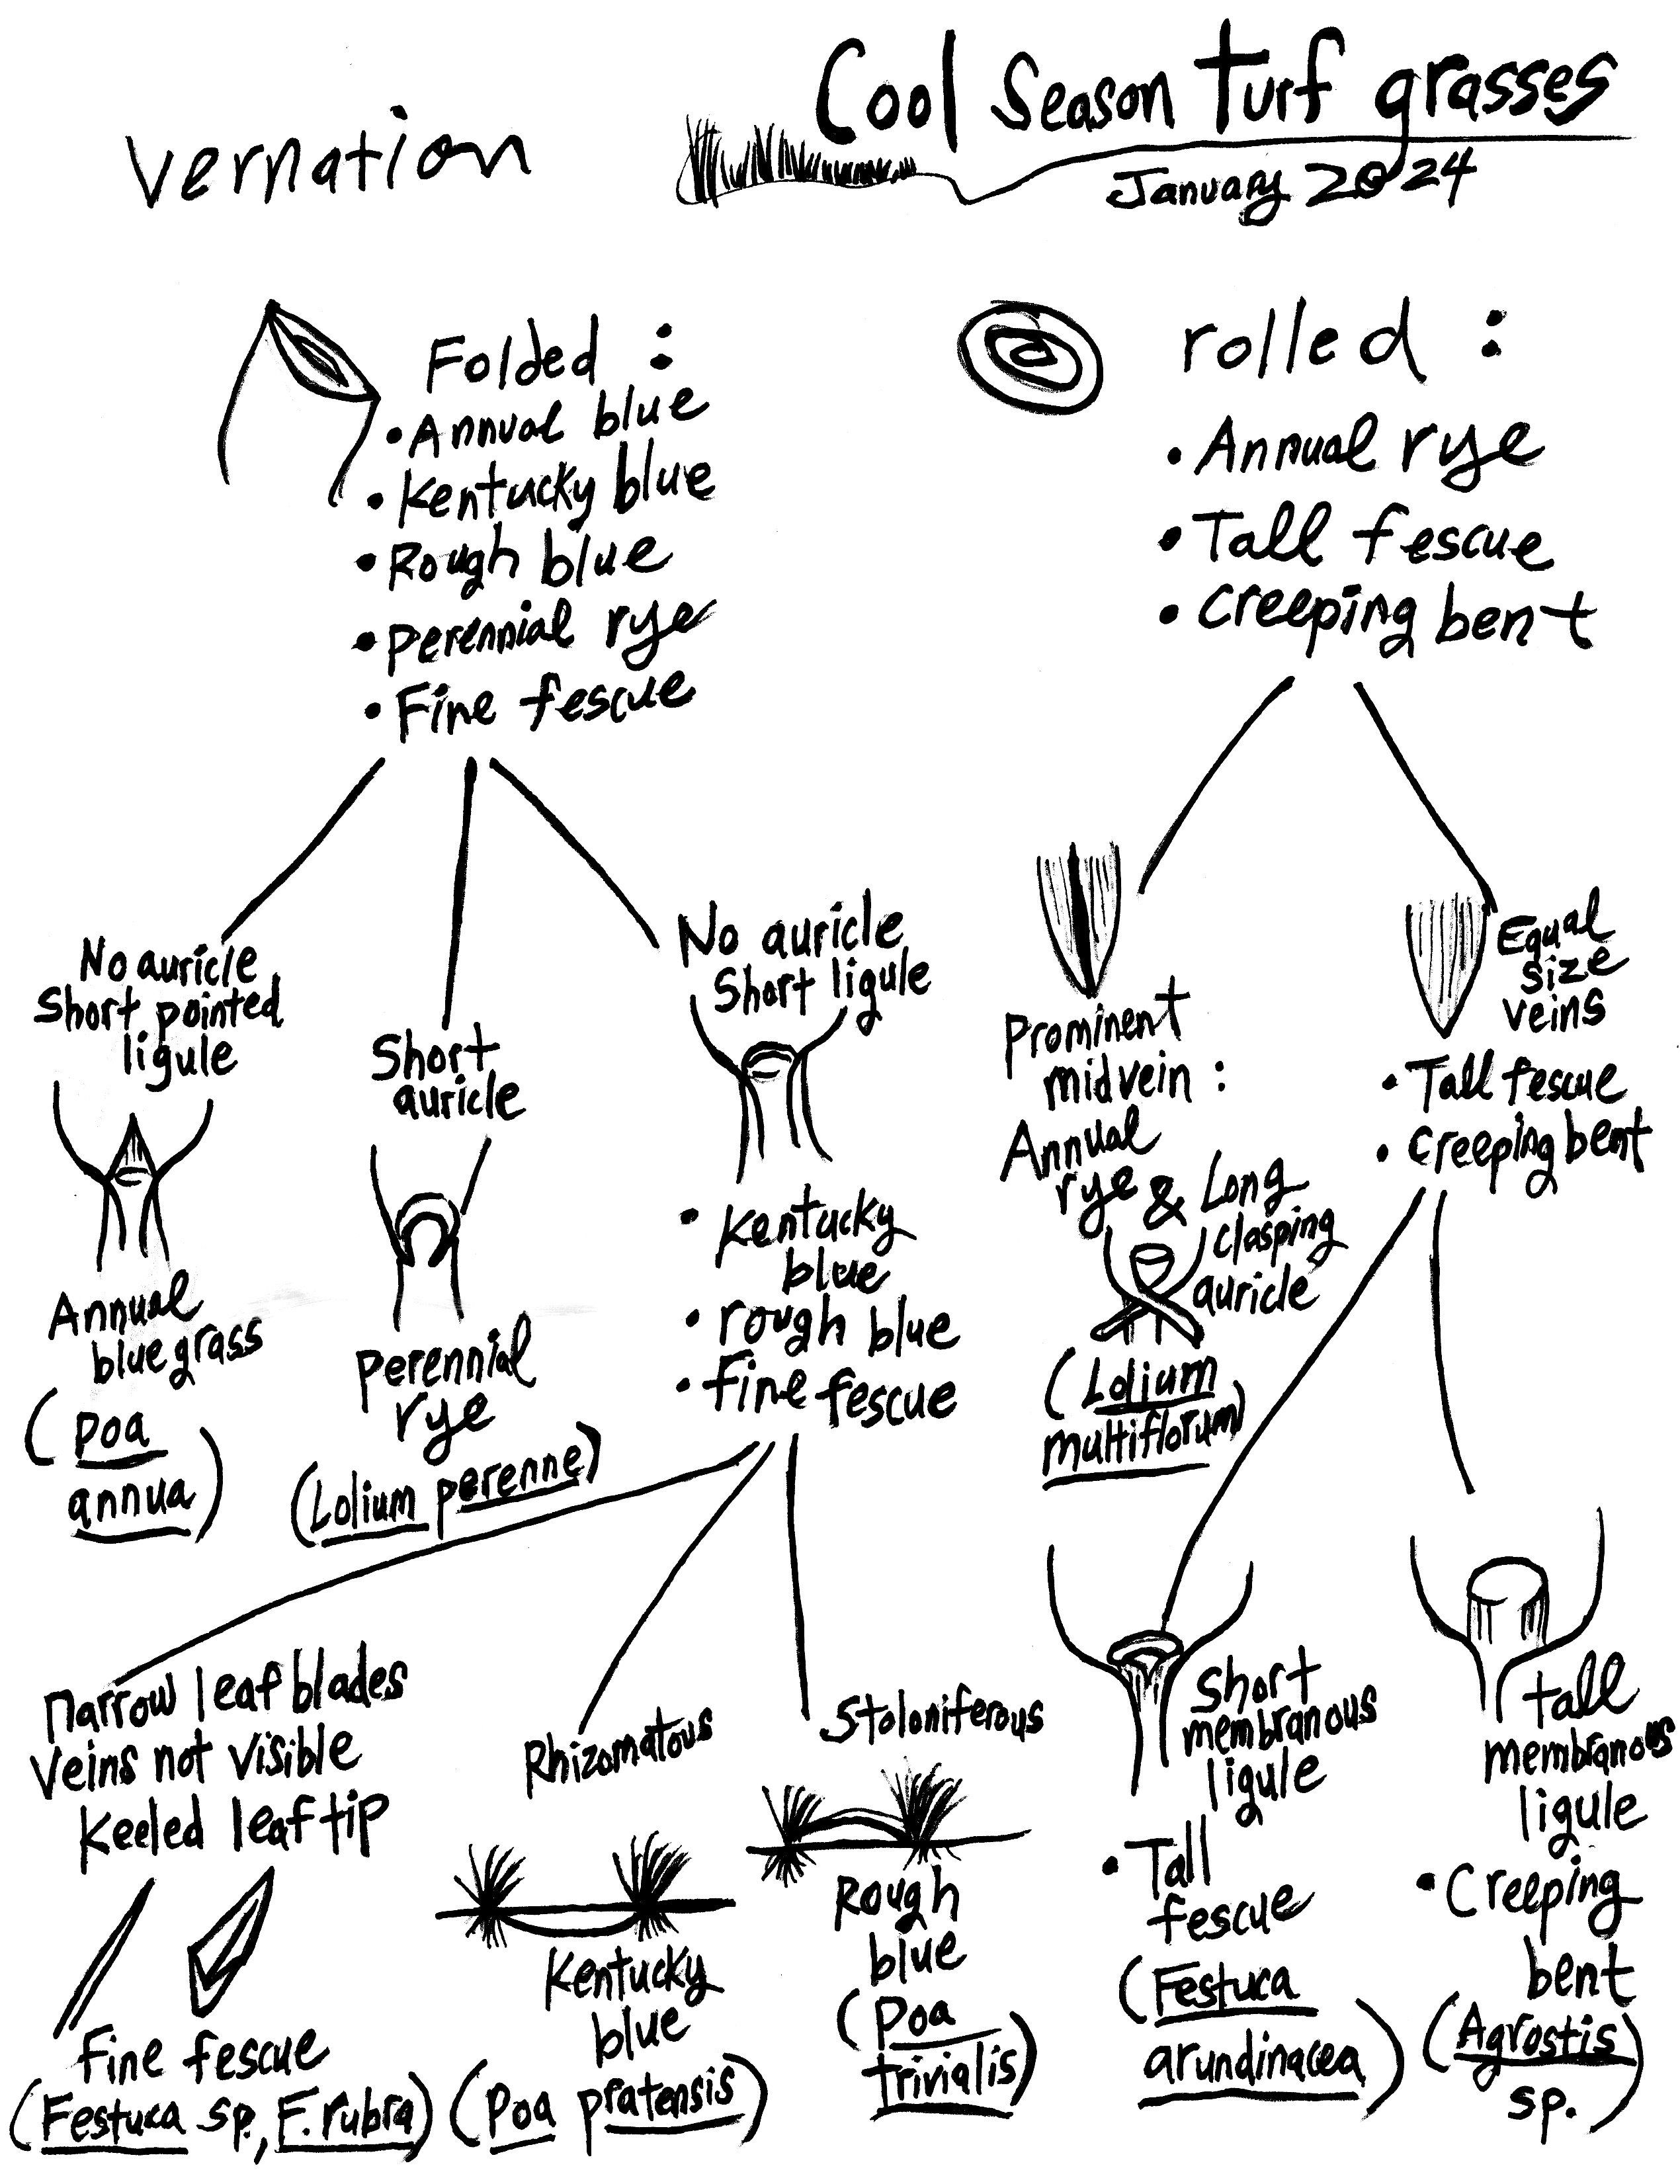 Cool Season turf grasses
January 2024
Vernation
Folded :
• Annual blue
• Kentucky blue
• Rough blue
• Perennial rye
• Fine fescue
rolled :
• Annual rye
• Tall fescue
• Creeping bent
No auricle
Short pointed
ligule
Annual
bluegrass
(Poa
annua)
Short
auricle
Perennial
rye
(Lolium perenne)
No auricle
Short ligule
• Kentucky
blue
• rough blue
• fine fescue
Prominent
midvein :
Annual
rye & Long
clasping
auricle
(Lolium
multiflorum)
Equal
size
veins
• Tall fescue
• Creeping bent
narrow leaf blades
Veins not visible
Keeled leaf tip
Fine fescue
(Festuca sp., F. rubra)
Rhizomatous
Kentucky
blue
(Poa pratensis)
Stoloniferous
Rough
blue
(Poa
trivialis)
Short
membranous
ligule
• Tall
fescue
(Festuca
arundinacea)
tall
membranous
ligule
• Creeping
bent
(Agrostis
sp.)